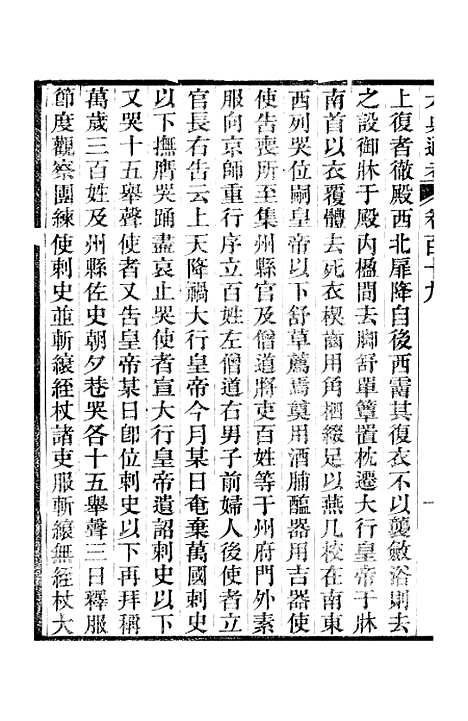 卷百十九
上復者徹殿西北厞降自後西霤其復衣不以襲斂浴則去
之設御牀于殿內楹間去腳舒單簟置枕遷大行皇帝于牀
南首以衣覆體去死衣楔齒用角柶綴足以燕几校在南東
西列哭位嗣皇帝以下舒草薦焉奠用酒脯醢器用吉器使
使告喪所至集州縣官及僧道將吏百姓等于州府門外素
服向京師重行序立百姓左僧道右男子前婦人後使者立
官長右告云上天降禍大行皇帝今月某日奄棄萬國刺史
以下撫膺哭踊盡哀止哭使者宣大行皇帝遺詔刺史以下
又哭十五舉聲使者又告皇帝某日卽位刺史以下再拜稱
萬歲三百姓及州縣佐史朝夕巷哭各十五舉聲三日釋服
節度觀察團練使刺史並斬縗絰杖諸吏服斬縗無絰杖大